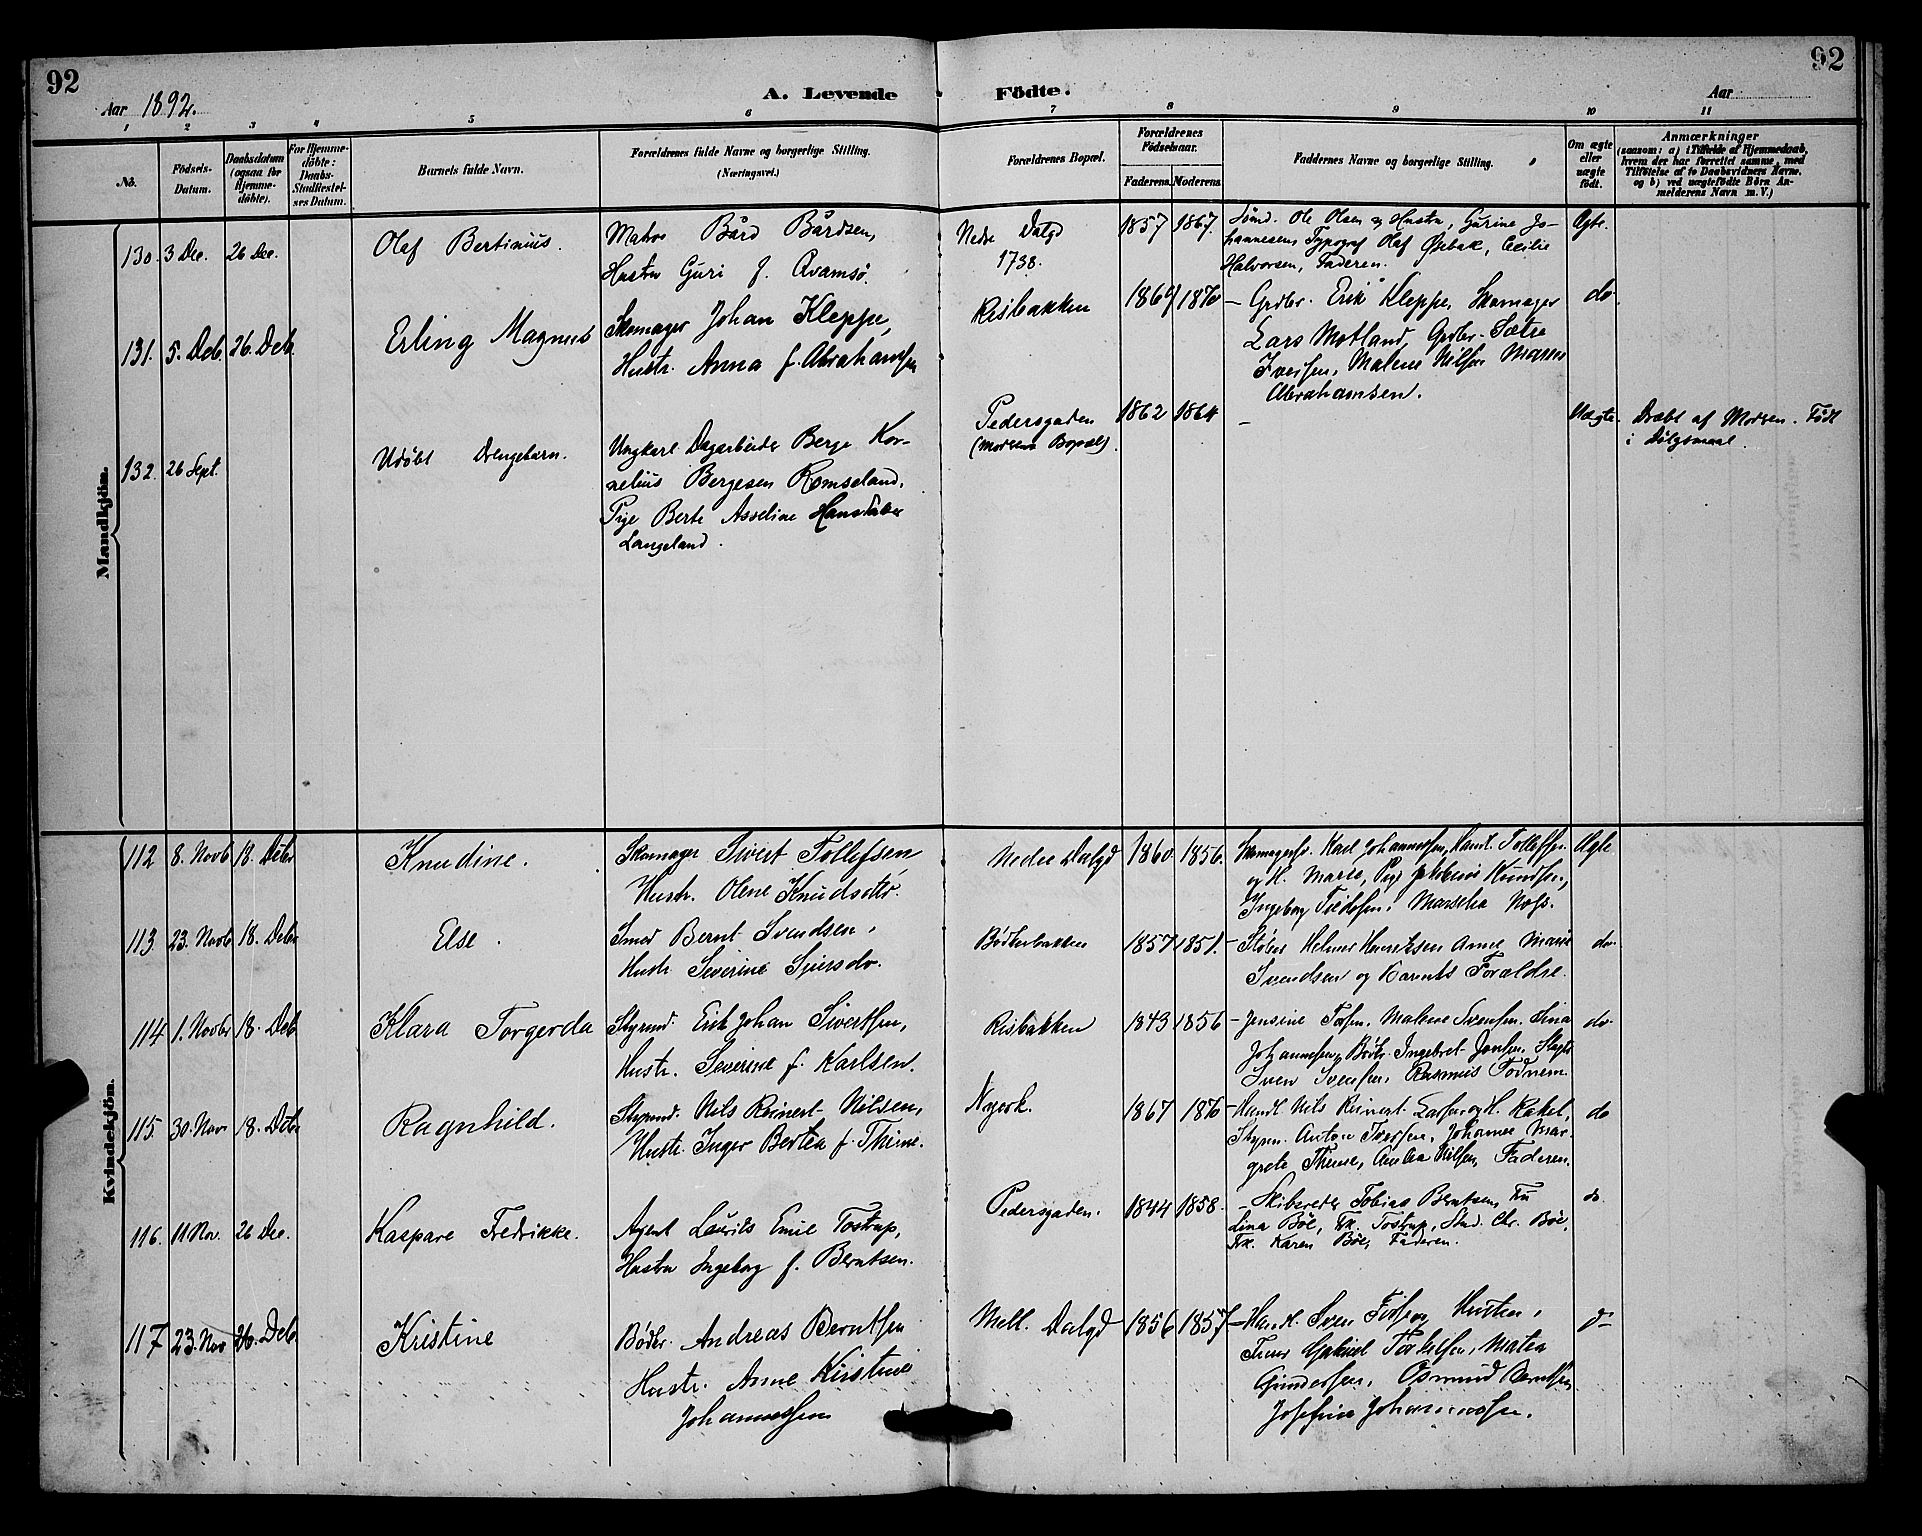 92
92
Aar 1892.
A. Levende Födte.
Aar
1 2 3 4 5 6 7 8 9 10 11
No.
Födsels-
Datum.
Daabsdatum
(ogsaa for
Hjemme-
döbte).
For Hjemme-
döbte:
Daabs-
Stadfæstel-
ses Datum.
Barnets fulde Navn.
Forældrenes fulde Navne og borgerlige Stilling.
(Næringsvei.)
Forældrenes Bopæl.
Forældrenes
Födselsaar.
Faderens. Moderens.
Faddernes Navne og borgerlige Stilling.
Om ægte
eller
uægte
födt.
Anmærkninger
(saasom: a) i Tilfælde af Hjemmedaab,
hvem der har forrettet samme, med
Tilföielse af to Daabsvidners Navne,
og b) ved uægtefödte Börn An-
melderens Navn m. V.)
Mandkjön.
130. 3 Dec. 26 Dec.
Olaf Bertinius.
Matros Bård Bårdsen,
Hustru Guri f. Qvamsö.
Nedre Dalgd
1738.
1857 1867.
Tömd. Ole Olsen og Hustru, Gurine Jo-
hannesen, Typograf Olaf Østbak, Cecilie
Halvorsen, Faderen.
Ægte.
131. 5. Deb. 26. Deb.
Erling Magnus
Skomager Johan Kleppe,
Hustr. Anna f. Abrahamsen
Risbakken
1869 1870
– Grdbr. Erik Kleppe, Skomager
Lars Motland, Grdbr. Sætre
Iversen, Malene Nilsen Maren
Abrahamsen.
do
132. 26 Sept.
Udöbt Drengebarn.
Ungkarl Dagarbeider Berge Kor-
nelius Bergesen Romseland,
Pige Berte Asseline Hansdatter
Langeland.
Pedersgaden
(Moderens Bopæl).
1862 1864
–
Uægte.
Dræbt af Moderen. Födt
i Dölgsmaal.
Kvindekjön.
112 8. Novb 18. Debr
Knudine.
Skomager Sivert Tollefsen
Hustr. Olene Knudsdtr.
Nedre Dalgd
1860 1856.
Skomagersv. Karl Johannessen, Handl. Tollefsen
og H. Marie, Pige Jakobine Knudsen,
Ingeborg Tollefsen, Marselia Næss.
Ægte
113 23. Novb 18. Debr
Else.
Smed Bernt Svendsen,
Hustr. Severine Sjursdr.
Bödkerbakken
1857 1851.
– Støber Helmer Henriksen Anne Marie
Svendsen og Barnets Forældre.
do
114 1. Novbr 18. Deb
Klara Torgerda
Styrmd. Erik Johan Sivertsen,
Hustr. Severine f. Karlsen.
Risbakken
1843 1856
– Jensine Torsen, Malene Svensen, Lina
Johannessen, Bödkr. Ingebret Jonsen, Slagt.
Sven Svensen, Rasmus Fodnem.
do
115. 30. Nov 18. Debr
Ragnhild.
Styrmd. Nils Reinert Nilsen,
Hustr. Inger Bertea f. Thime.
Nyverk.
1867 1870
– Handl. Nils Reinert Larsen og H. Rakel,
Styrm. Anton Iversen, Johanne Mar-
grete Theme, Amalia Nilsen, Faderen.
do
116. 11 Nov. 26 Dec.
Kaspare Fredrikke.
Agent Laurits Emil Tostrup,
Hustru Ingeborg f. Berntsen.
Pedersgaden.
1844 1858.
– Skibsreder Tobias Berntsen, Fru
Lina Böe, Frk. Tostrup, Stud. Chr. Böe,
Frk. Karen Böe, Faderen.
do.
117 23. Nov 26. Deb
Kristine
Bödkr. Andreas Berntsen
Hustr. Anne Kirstine
Johannessen
Mell. Dalgd
1856 1857
– Handl. Sven Torsen og Hustru,
Gabriel Torkelsen, Matea
Gundersen, Osmund Berntsen
Josefine Johannessen.
do